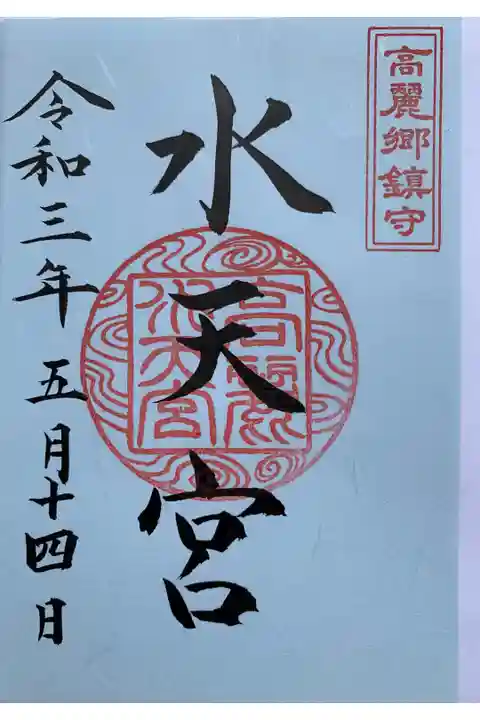 高麗郷鎮守
水天宮
高麗
水天宮
令和三年五月十四日